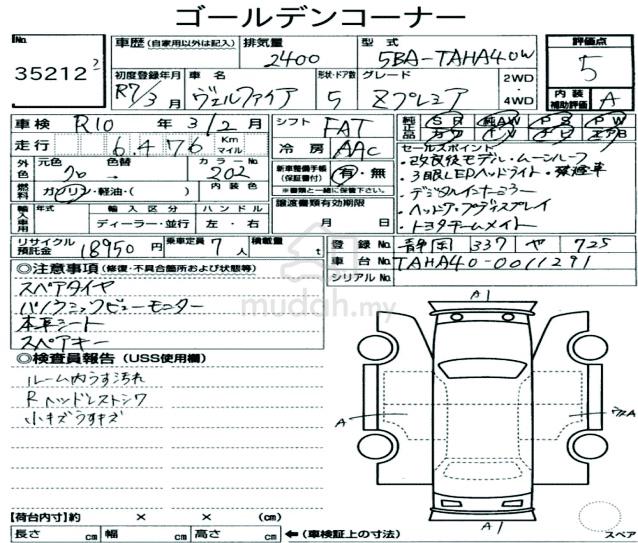 ゴールデンコーナー
No. 35212
車歴 (自家用以外は記入)
排気量 2400
型式 5BA-TAHA40W
評価点 5
初度登録年月 R7/3月
車名 ヴェルファイア
形状・ドア数 5
グレード Zプレミア
2WD
4WD
内装補助評価 A
車検 R10年3/2月
シフト FAT
純正部品 SR 純AW PS PW
走行 6,476 Km マイル
冷房 AAC
セールスポイント
・改良後モデル・ムーンルーフ
外色 元色 クロ → 色替
カラーNo. 202
新車整備手帳(保証書付) 有・無
※書類と一緒に保管下さい。
・3眼LEDヘッドライト・禁煙車
・デジタルインナーミラー
燃料 ガソリン・軽油・( )
内装色
・ヘッドアップディスプレイ
・トヨタチームメイト
輸入車用 年式 輸入区分 ハンドル
ディーラー・並行 左・右
譲渡書類有効期限
月 日
リサイクル預託金 18950円
乗車定員 7人
積載量 t
登録 静岡 337 や 725
車台No. TAHA40-0011291
シリアルNo.
◎注意事項 (修復・不具合箇所および状態等)
スペアタイヤ
パノラミックビューモニター
本革シート
スペアキー
mudah.my
◎検査員報告 (USS使用欄)
ルーム内うす汚れ
Rヘッドレストシワ
小キズうすキズ
A1
A
A
A1
スペア
【荷台内寸】約 × × (cm)
長さ cm 幅 cm 高さ cm ←(車検証上の寸法)